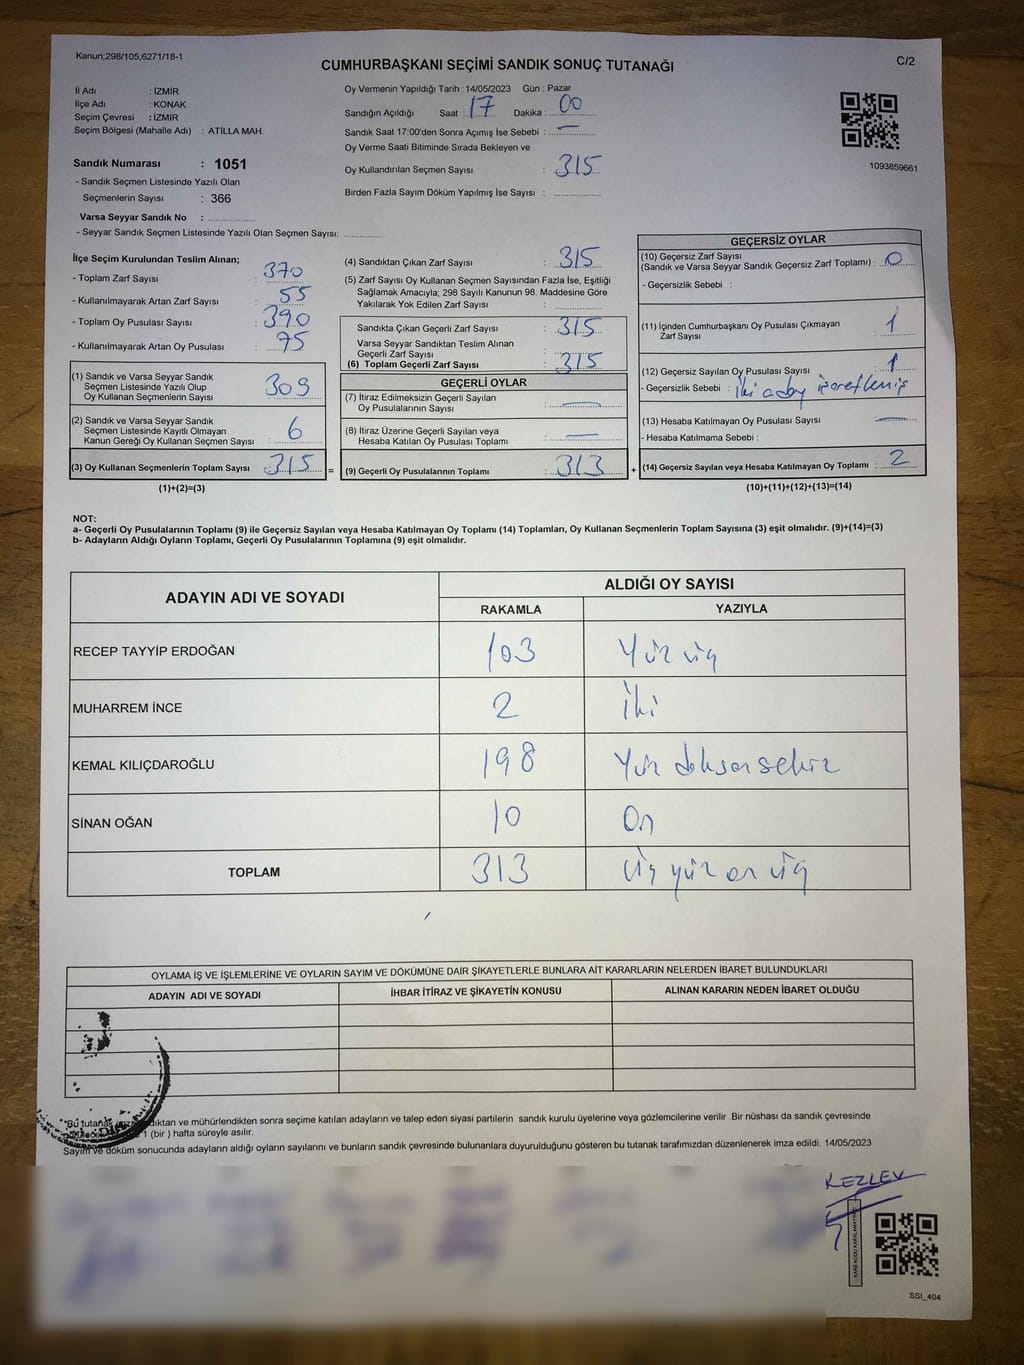 Kanun;298/105;6271/18-1
C/2
CUMHURBAŞKANI SEÇİMİ SANDIK SONUÇ TUTANAĞI
İli Adı : İZMİR
İlçe Adı : KONAK
Seçim Çevresi : İZMİR
Seçim Bölgesi (Mahalle Adı) : ATİLLA MAH.
Sandık Numarası : 1051
- Sandık Seçmen Listesinde Yazılı Olan
Seçmenlerin Sayısı : 366
Varsa Seyyar Sandık No :
- Seyyar Sandık Seçmen Listesinde Yazılı Olan Seçmen Sayısı:
Oy Vermenin Yapıldığı Tarih : 14/05/2023 Gün : Pazar
Sandığın Açıldığı Saat : 17 Dakika : 00
Sandık Saat 17:00'den Sonra Açımış İse Sebebi : —
Oy Verme Saati Bitiminde Sırada Bekleyen ve
Oy Kullandırılan Seçmen Sayısı : 315
Birden Fazla Sayım Döküm Yapılmış İse Sayısı :
1093859661
İlçe Seçim Kurulundan Teslim Alınan;
- Toplam Zarf Sayısı : 370
- Kullanılmayarak Artan Zarf Sayısı : 55
- Toplam Oy Pusulası Sayısı : 390
- Kullanılmayarak Artan Oy Pusulası : 75
(1) Sandık ve Varsa Seyyar Sandık
Seçmen Listesinde Yazılı Olup
Oy Kullanan Seçmenlerin Sayısı : 309
(2) Sandık ve Varsa Seyyar Sandık
Seçmen Listesinde Kayıtlı Olmayan
Kanun Gereği Oy Kullanan Seçmen Sayısı : 6
(3) Oy Kullanan Seçmenlerin Toplam Sayısı : 315 =
(1)+(2)=(3)
(4) Sandıktan Çıkan Zarf Sayısı : 315
(5) Zarf Sayısı Oy Kullanan Seçmen Sayısından Fazla İse, Eşitliği
Sağlamak Amacıyla; 298 Sayılı Kanunun 98. Maddesine Göre
Yakılarak Yok Edilen Zarf Sayısı :
Sandıkta Çıkan Geçerli Zarf Sayısı : 315
Varsa Seyyar Sandıktan Teslim Alınan
Geçerli Zarf Sayısı :
(6) Toplam Geçerli Zarf Sayısı : 315
GEÇERLİ OYLAR
(7) İtiraz Edilmeksizin Geçerli Sayılan
Oy Pusulalarının Sayısı : —
(8) İtiraz Üzerine Geçerli Sayılan veya
Hesaba Katılan Oy Pusulası Toplamı : —
(9) Geçerli Oy Pusulalarının Toplamı : 313 +
GEÇERSİZ OYLAR
(10) Geçersiz Zarf Sayısı
(Sandık ve Varsa Seyyar Sandık Geçersiz Zarf Toplamı) : 0
- Geçersizlik Sebebi :
(11) İçinden Cumhurbaşkanı Oy Pusulası Çıkmayan
Zarf Sayısı : 1
(12) Geçersiz Sayılan Oy Pusulası Sayısı : 1
- Geçersizlik Sebebi : İki aday işaretlemiş
(13) Hesaba Katılmayan Oy Pusulası Sayısı : —
- Hesaba Katılmama Sebebi :
(14) Geçersiz Sayılan veya Hesaba Katılmayan Oy Toplamı : 2
(10)+(11)+(12)+(13)=(14)
NOT:
a- Geçerli Oy Pusulalarının Toplamı (9) ile Geçersiz Sayılan veya Hesaba Katılmayan Oy Toplamı (14) Toplamları, Oy Kullanan Seçmenlerin Toplam Sayısına (3) eşit olmalıdır. (9)+(14)=(3)
b- Adayların Aldığı Oyların Toplamı, Geçerli Oy Pusulalarının Toplamına (9) eşit olmalıdır.
ADAYIN ADI VE SOYADI
ALDIĞI OY SAYISI
RAKAMLA YAZIYLA
RECEP TAYYİP ERDOĞAN 103 Yüz üç
MUHARREM İNCE 2 İki
KEMAL KILIÇDAROĞLU 198 Yüz doksan sekiz
SİNAN OĞAN 10 On
TOPLAM 313 üç yüz on üç
OYLAMA İŞ VE İŞLEMLERİNE VE OYLARIN SAYIM VE DÖKÜMÜNE DAİR ŞİKAYETLERLE BUNLARA AİT KARARLARIN NELERDEN İBARET BULUNDUKLARI
ADAYIN ADI VE SOYADI İHBAR İTİRAZ VE ŞİKAYETİN KONUSU ALINAN KARARIN NEDEN İBARET OLDUĞU
"Bu tutanak ve mühürlendikten sonra seçime katılan adayların ve talep eden siyasi partilerin sandık kurulu üyelerine veya gözlemcilerine verilir .Bir nüshası da sandık çevresinde
1 (bir ) hafta süreyle asılır.
Sayım ve döküm sonucunda adayların aldığı oyların sayılarını ve bunların sandık çevresinde bulunanlara duyurulduğunu gösteren bu tutanak tarafımızdan düzenlenerek imza edildi. 14/05/2023
KEZLEV
SSI_404